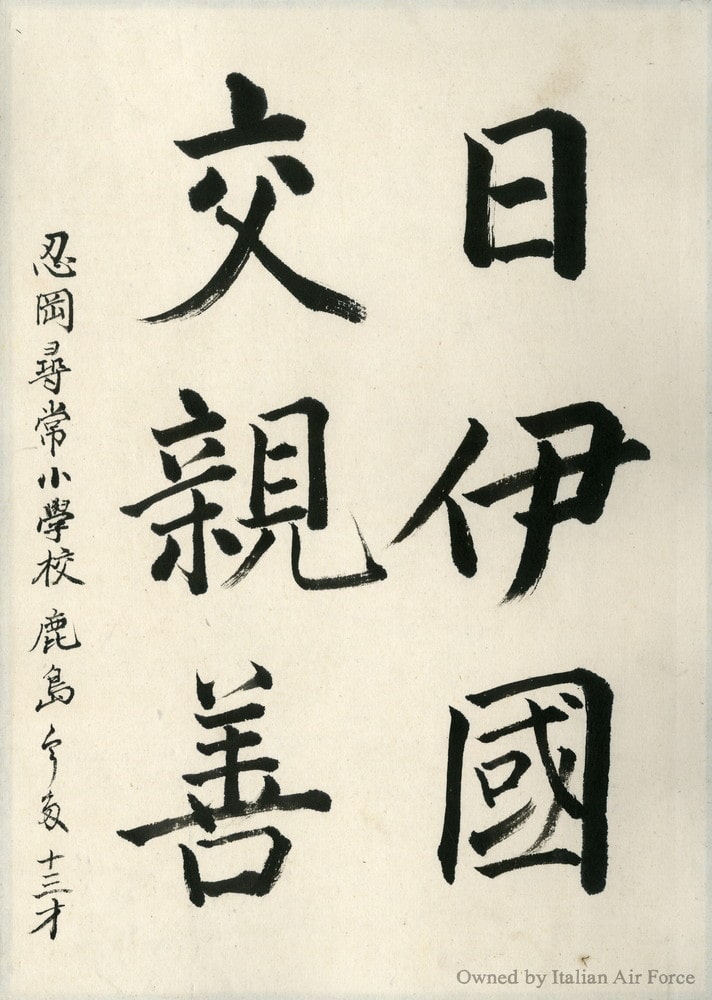 日伊國
交親善
忍岡尋常小學校 鹿島 十三才
Owned by Italian Air Force